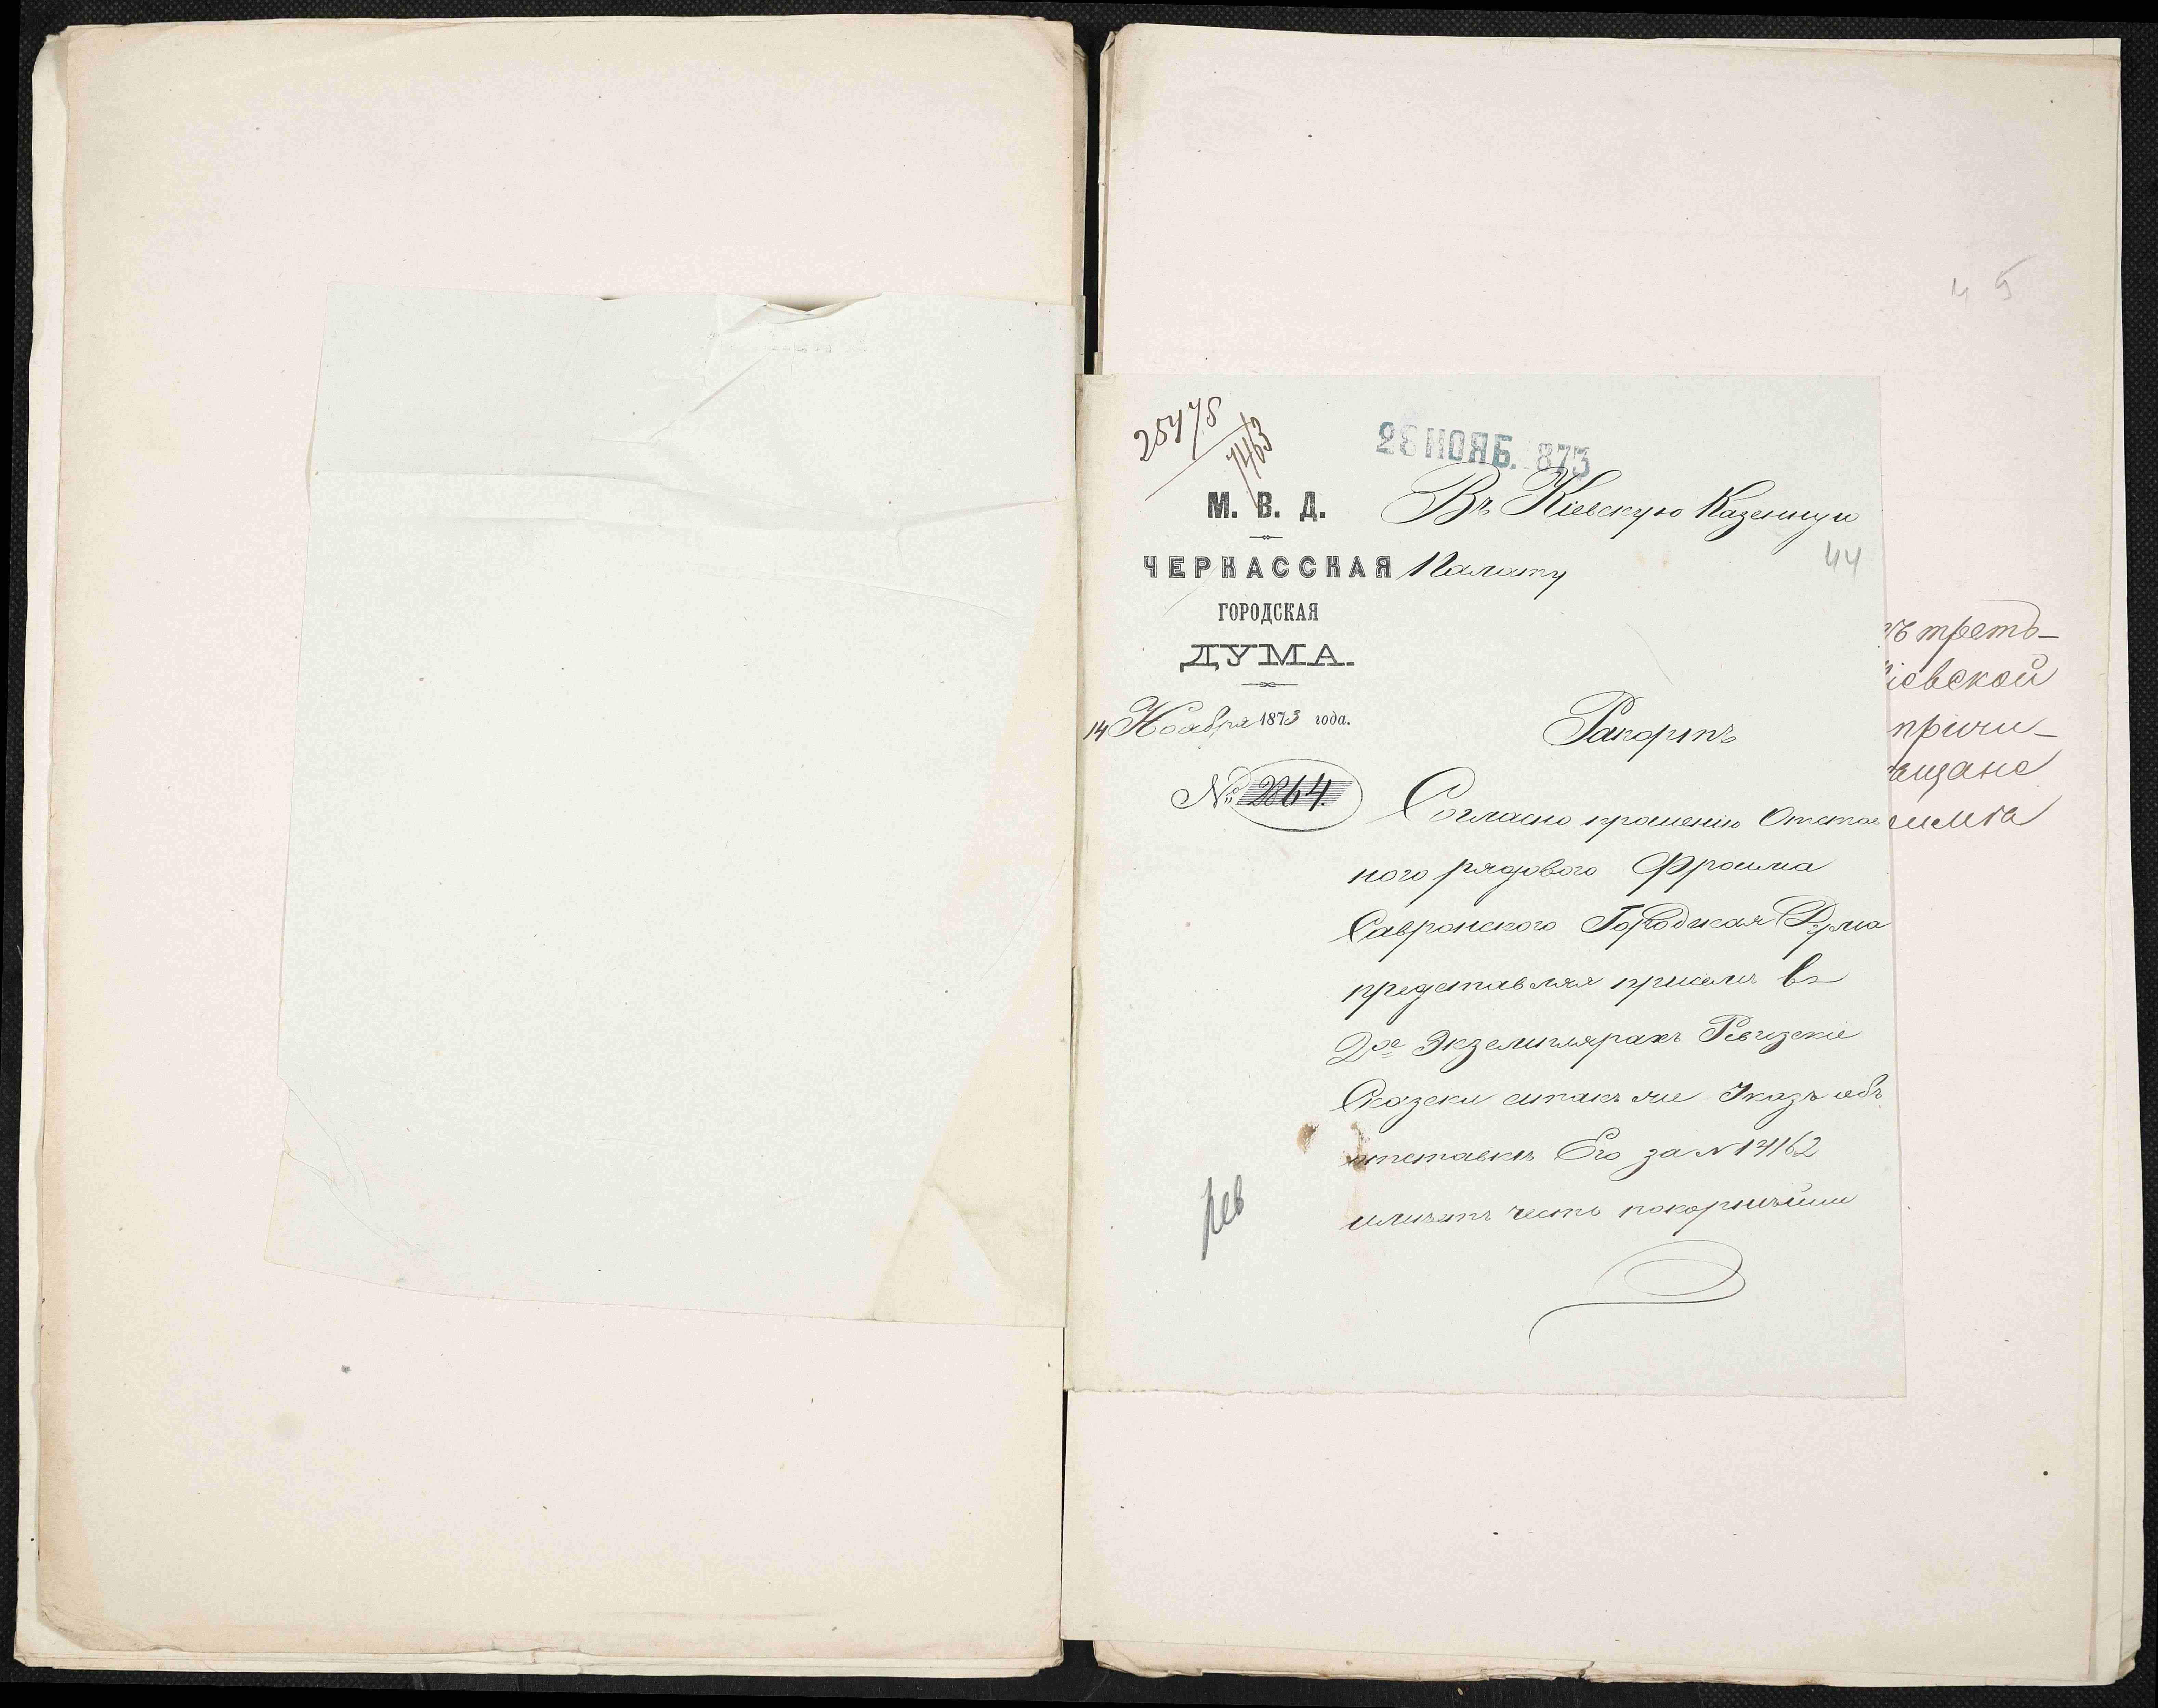 45
25475
1463
26 НОЯБ. 1873
М. В. Д.
ЧЕРКАССКАЯ
ГОРОДСКАЯ
ДУМА.
14 Ноября 1873 года.
№ 2864.
Въ Кіевскую Казенную
44
Палату
Рапортъ
Согласно прошенію Отстав
ного рядового Фроима
Савронского Городская Дума
представляя присемъ въ
2хъ Экземплярахъ Ревизскіе
Сказски Указъ объ
отставкъ Его за №
имъетъ честь покорнъйше
рев
третъ-
іевской
причи-
ъщане